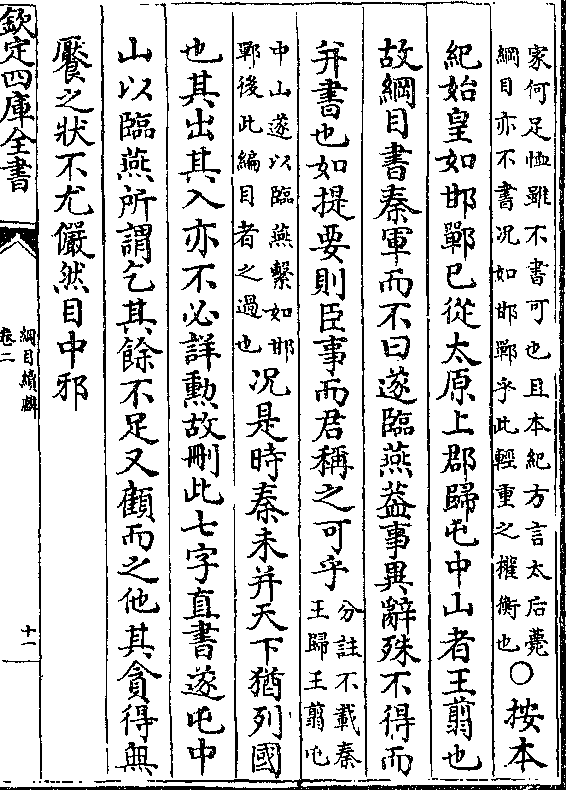 家何足恤雖不書可也且本紀方言太后薨
綱目亦不書况如邯鄲乎此輕重之權衡也
○按本
紀始皇如邯鄲已從太原上郡歸屯中山者王翦也
故綱目書秦軍而不曰遂臨燕葢事異辭殊不得而
并書也如提要則臣事而君稱之可乎
分註不載秦
王歸王翦屯
中山遂以臨燕繫如邯
鄲後此編目者之過也
况是時秦未并天下猶列國
也其出其入亦不必詳勲故刪此七字直書遂屯中
山以臨燕所謂乞其餘不足又顧而之他其貪得無
饜之狀不尤儼然目中邪
欽定四庫全書
綱目續麟
卷二
十一